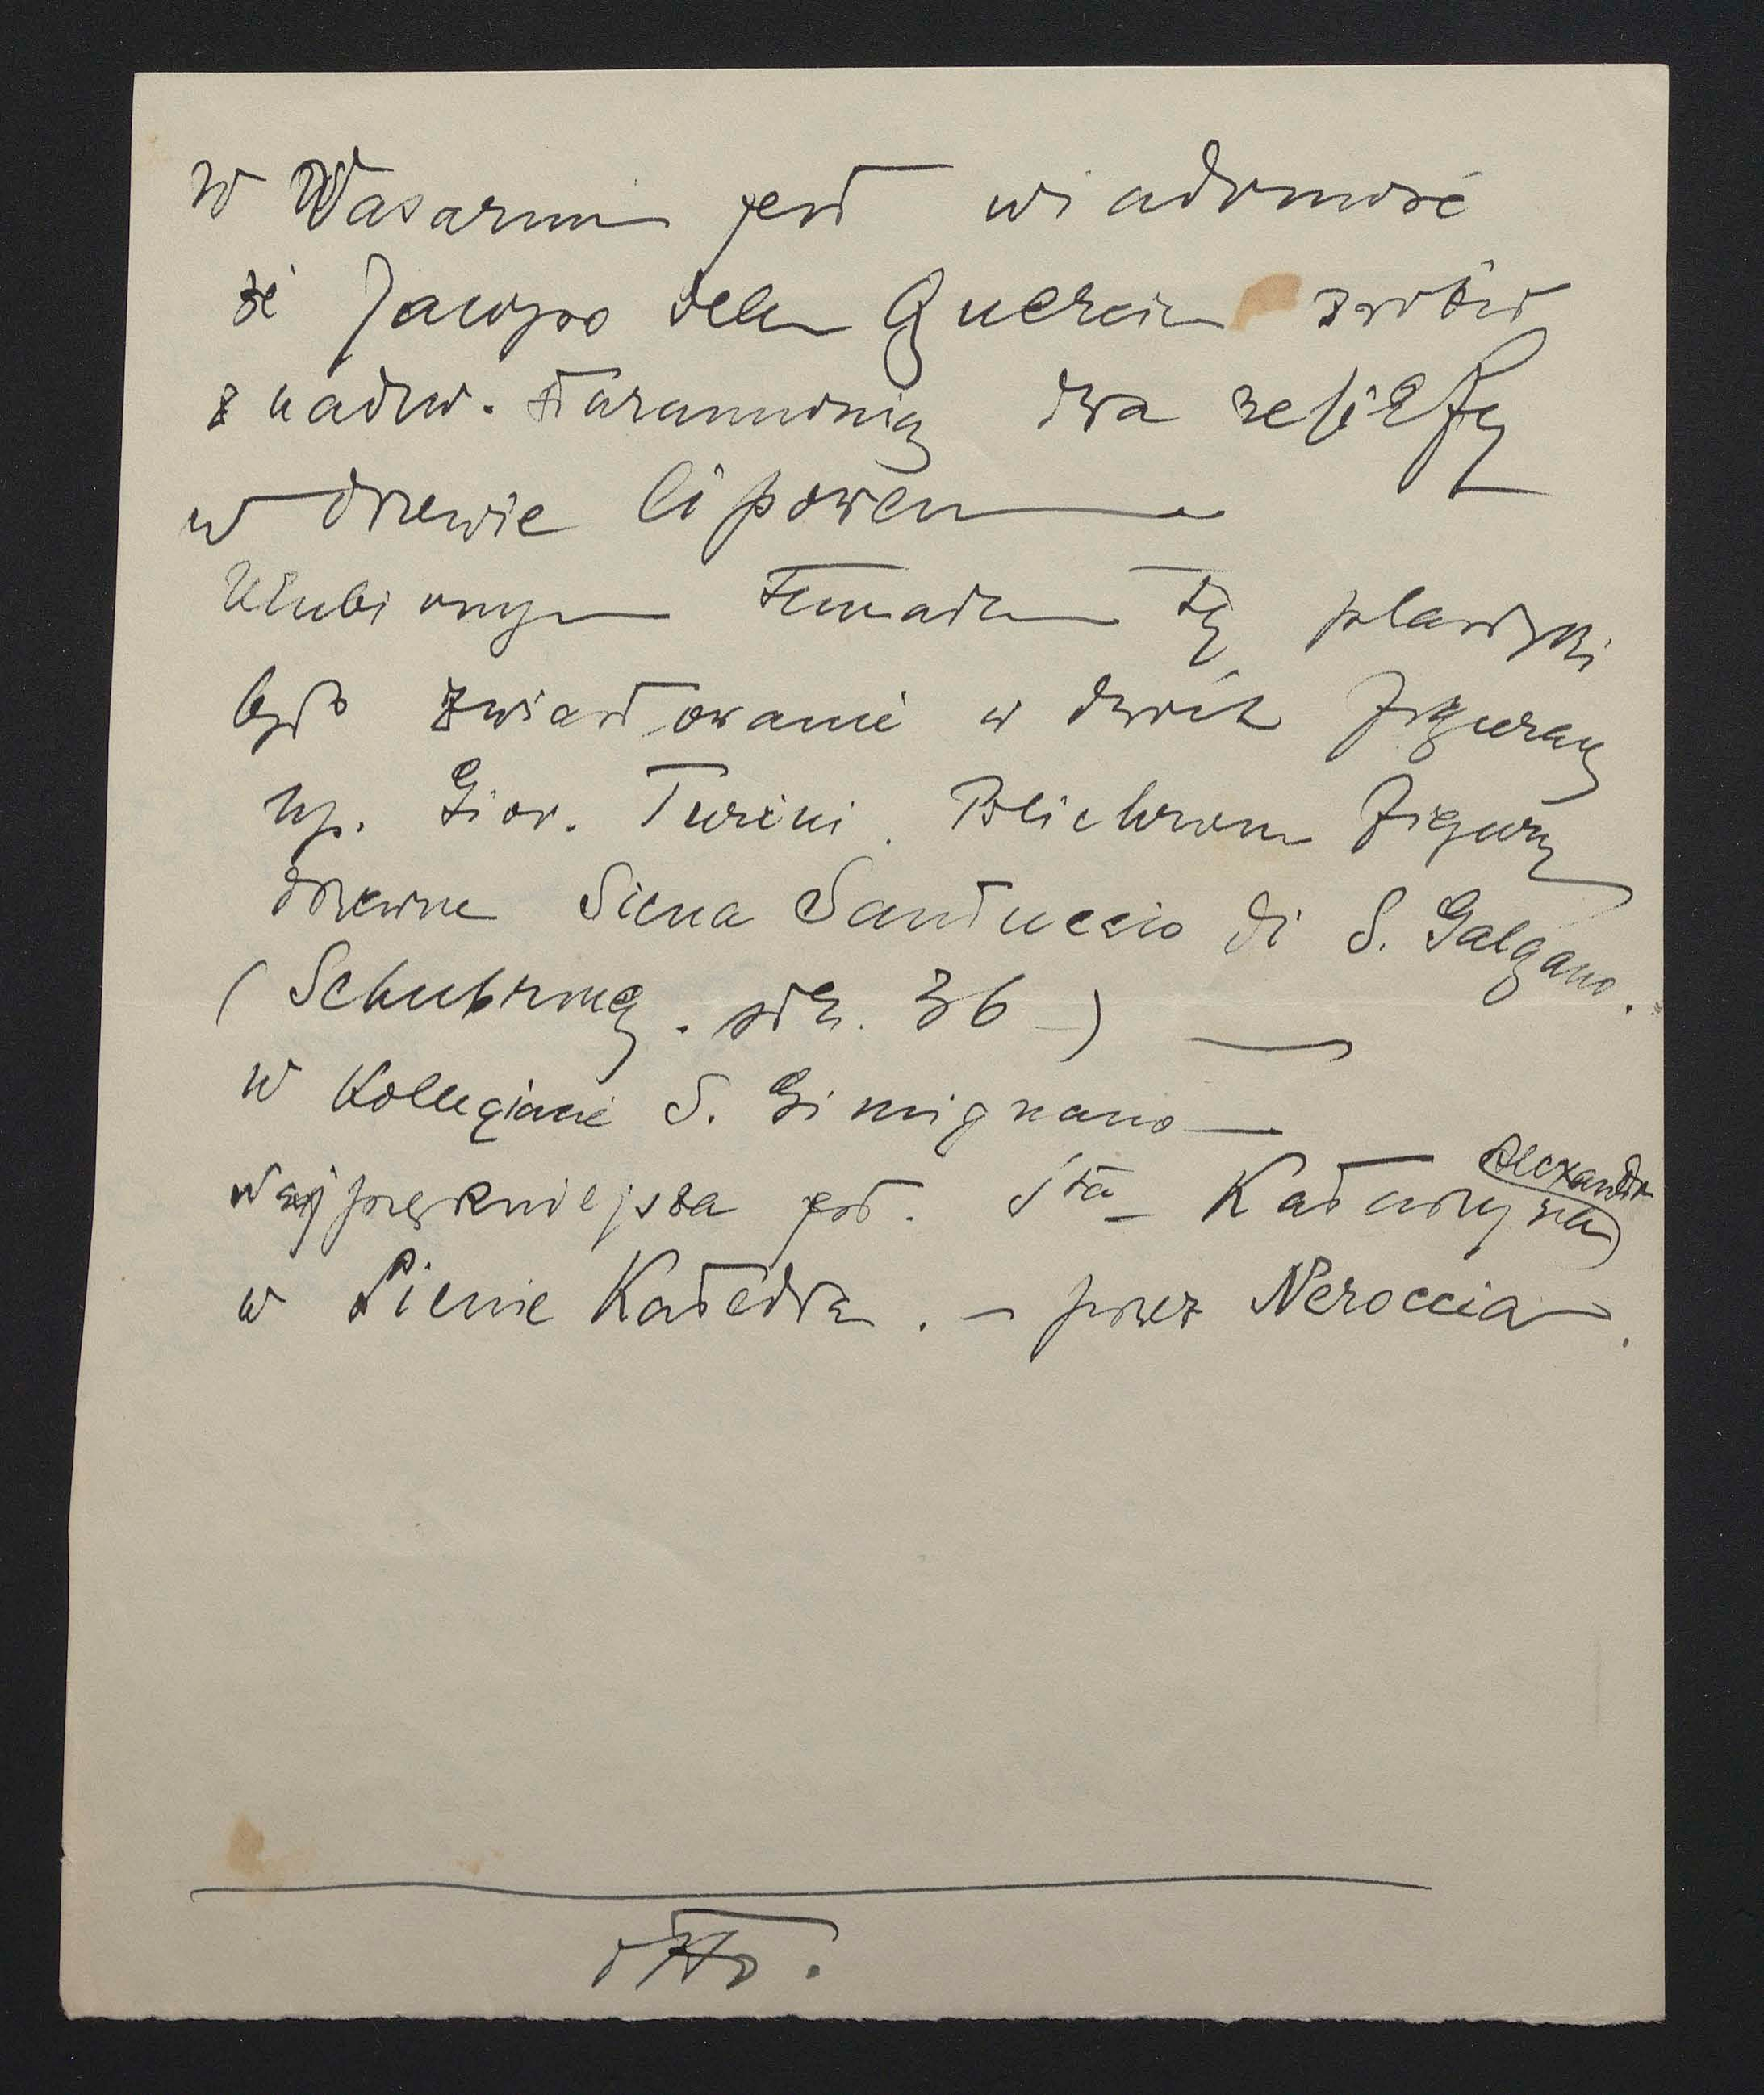 W Wasarim jest wiadomość
że Jacopo dela Quercia zrobił
z nadzw. starannością dwa reliefy
w drzewie lipowem
Ulubionym tematem tej plastyki
było zwiastowanie w dwóch figurach
np. Giov. Turini. Polichrom figury
drzewne Siena Santuccio di S. Galgano.
(Schubring. str. 36)
w Kollegiacie S. Gimignano
Najpiękniejsza jest. Sta Katarzyna Alexandr
w Sienie Katedra. - przez Neroccia.